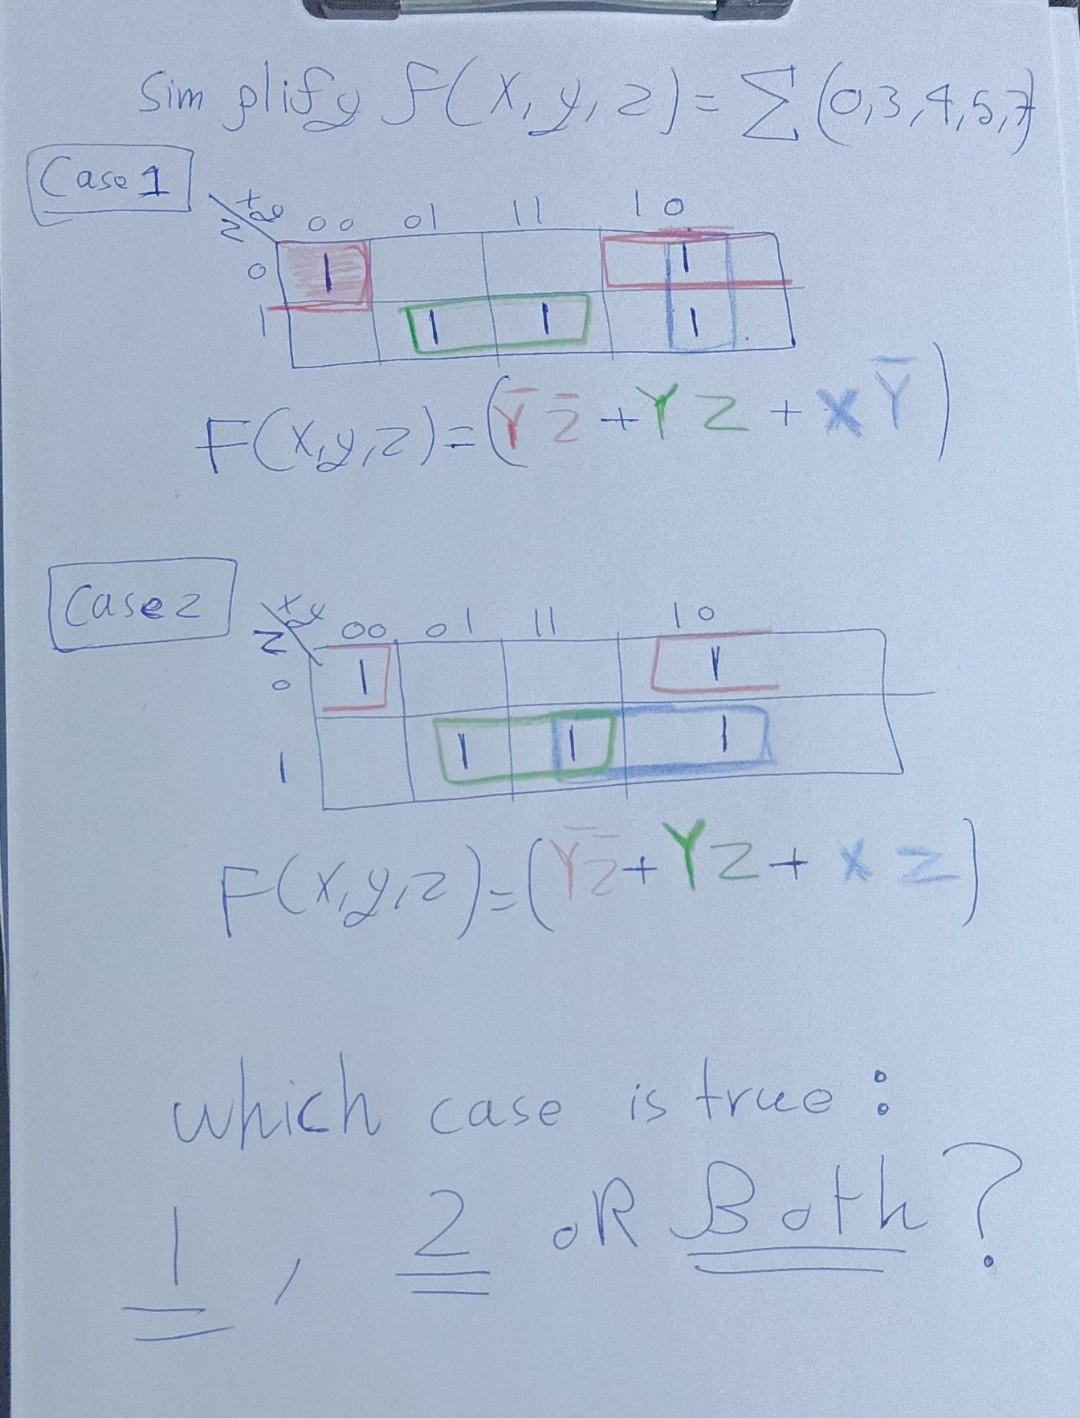 Simplify F(X,y,z)=∑(0,3,4,5,7)
Case 1
xy 00 01 11 10
z
0 1 1
1 1 1 1
F(X,y,z)=(Y̅ Z̅ + Y Z + X Y̅)
Case 2
xy 00 01 11 10
z
0 1 1
1 1 1 1
F(X,y,z)=(Y̅ Z̅ + Y Z + X Z)
which case is true :
1 , 2 oR Both ?